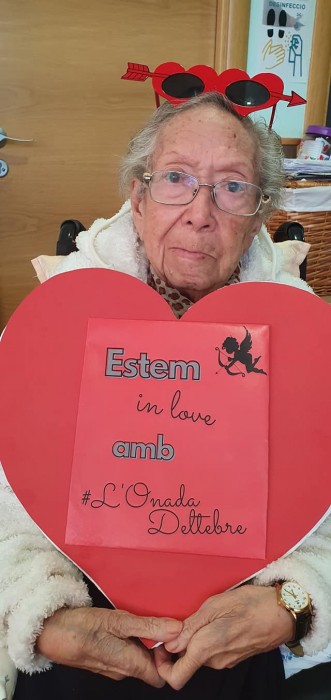 DESINFECCIÓ
Estem
in love
amb
#L'Onada
Deltebre